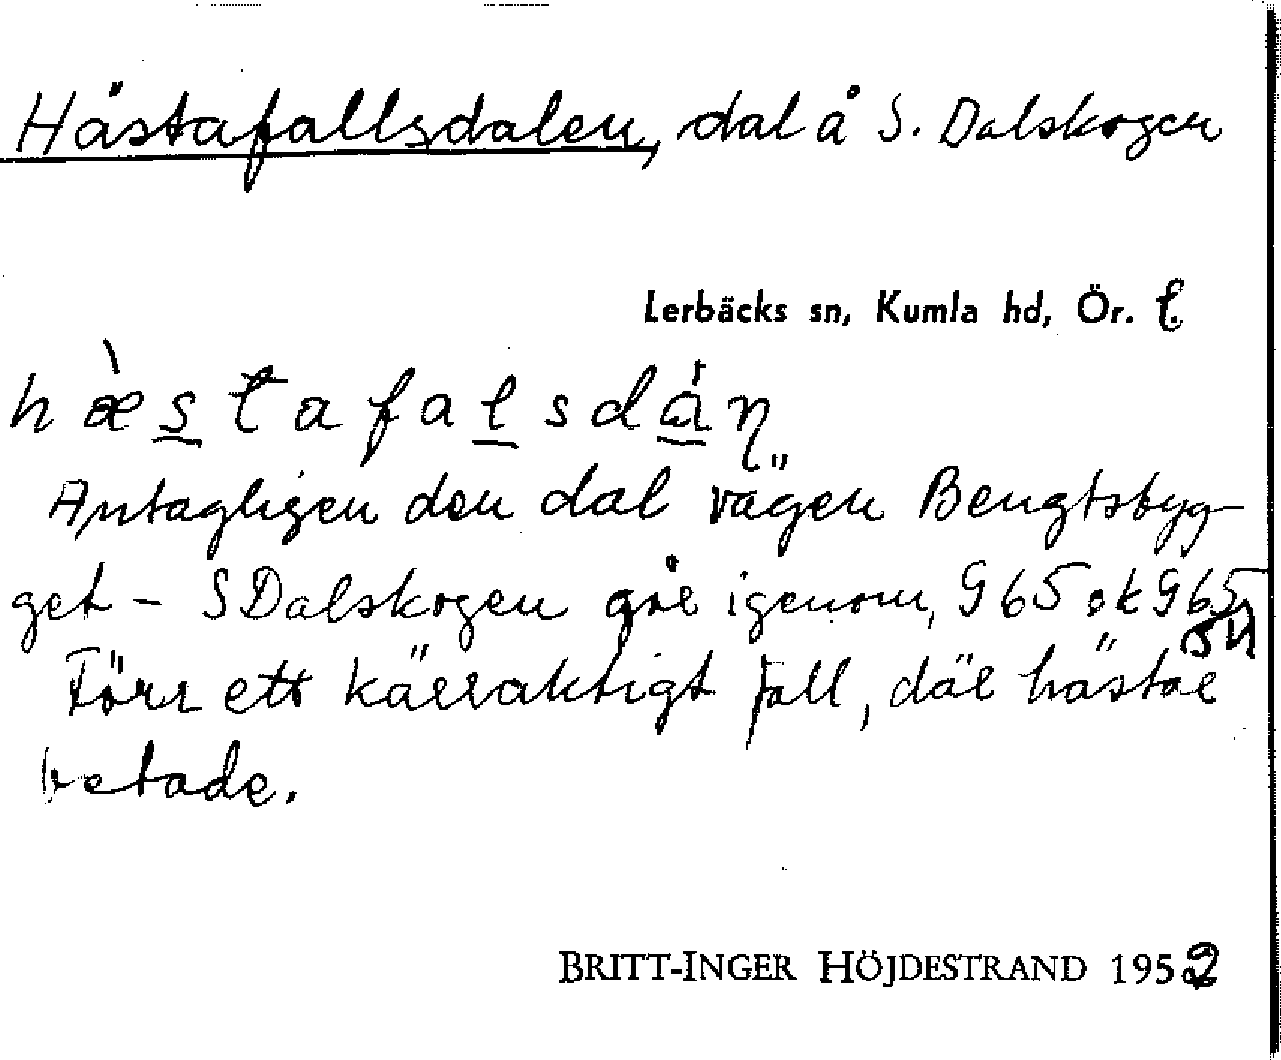 Hästafallsdalen, dal å S. Dalskogen
Lerbäcks sn, Kumla hd, Ör. l.
hæ̀stafalsdáṇ
Antagligen den dal vägen Bengtsbyg-
get - S Dalskogen går igenom, 965 ok 965
Förr ett kärraktigt fall, där hästar
betade.
BRITT-INGER HÖJDESTRAND 1952